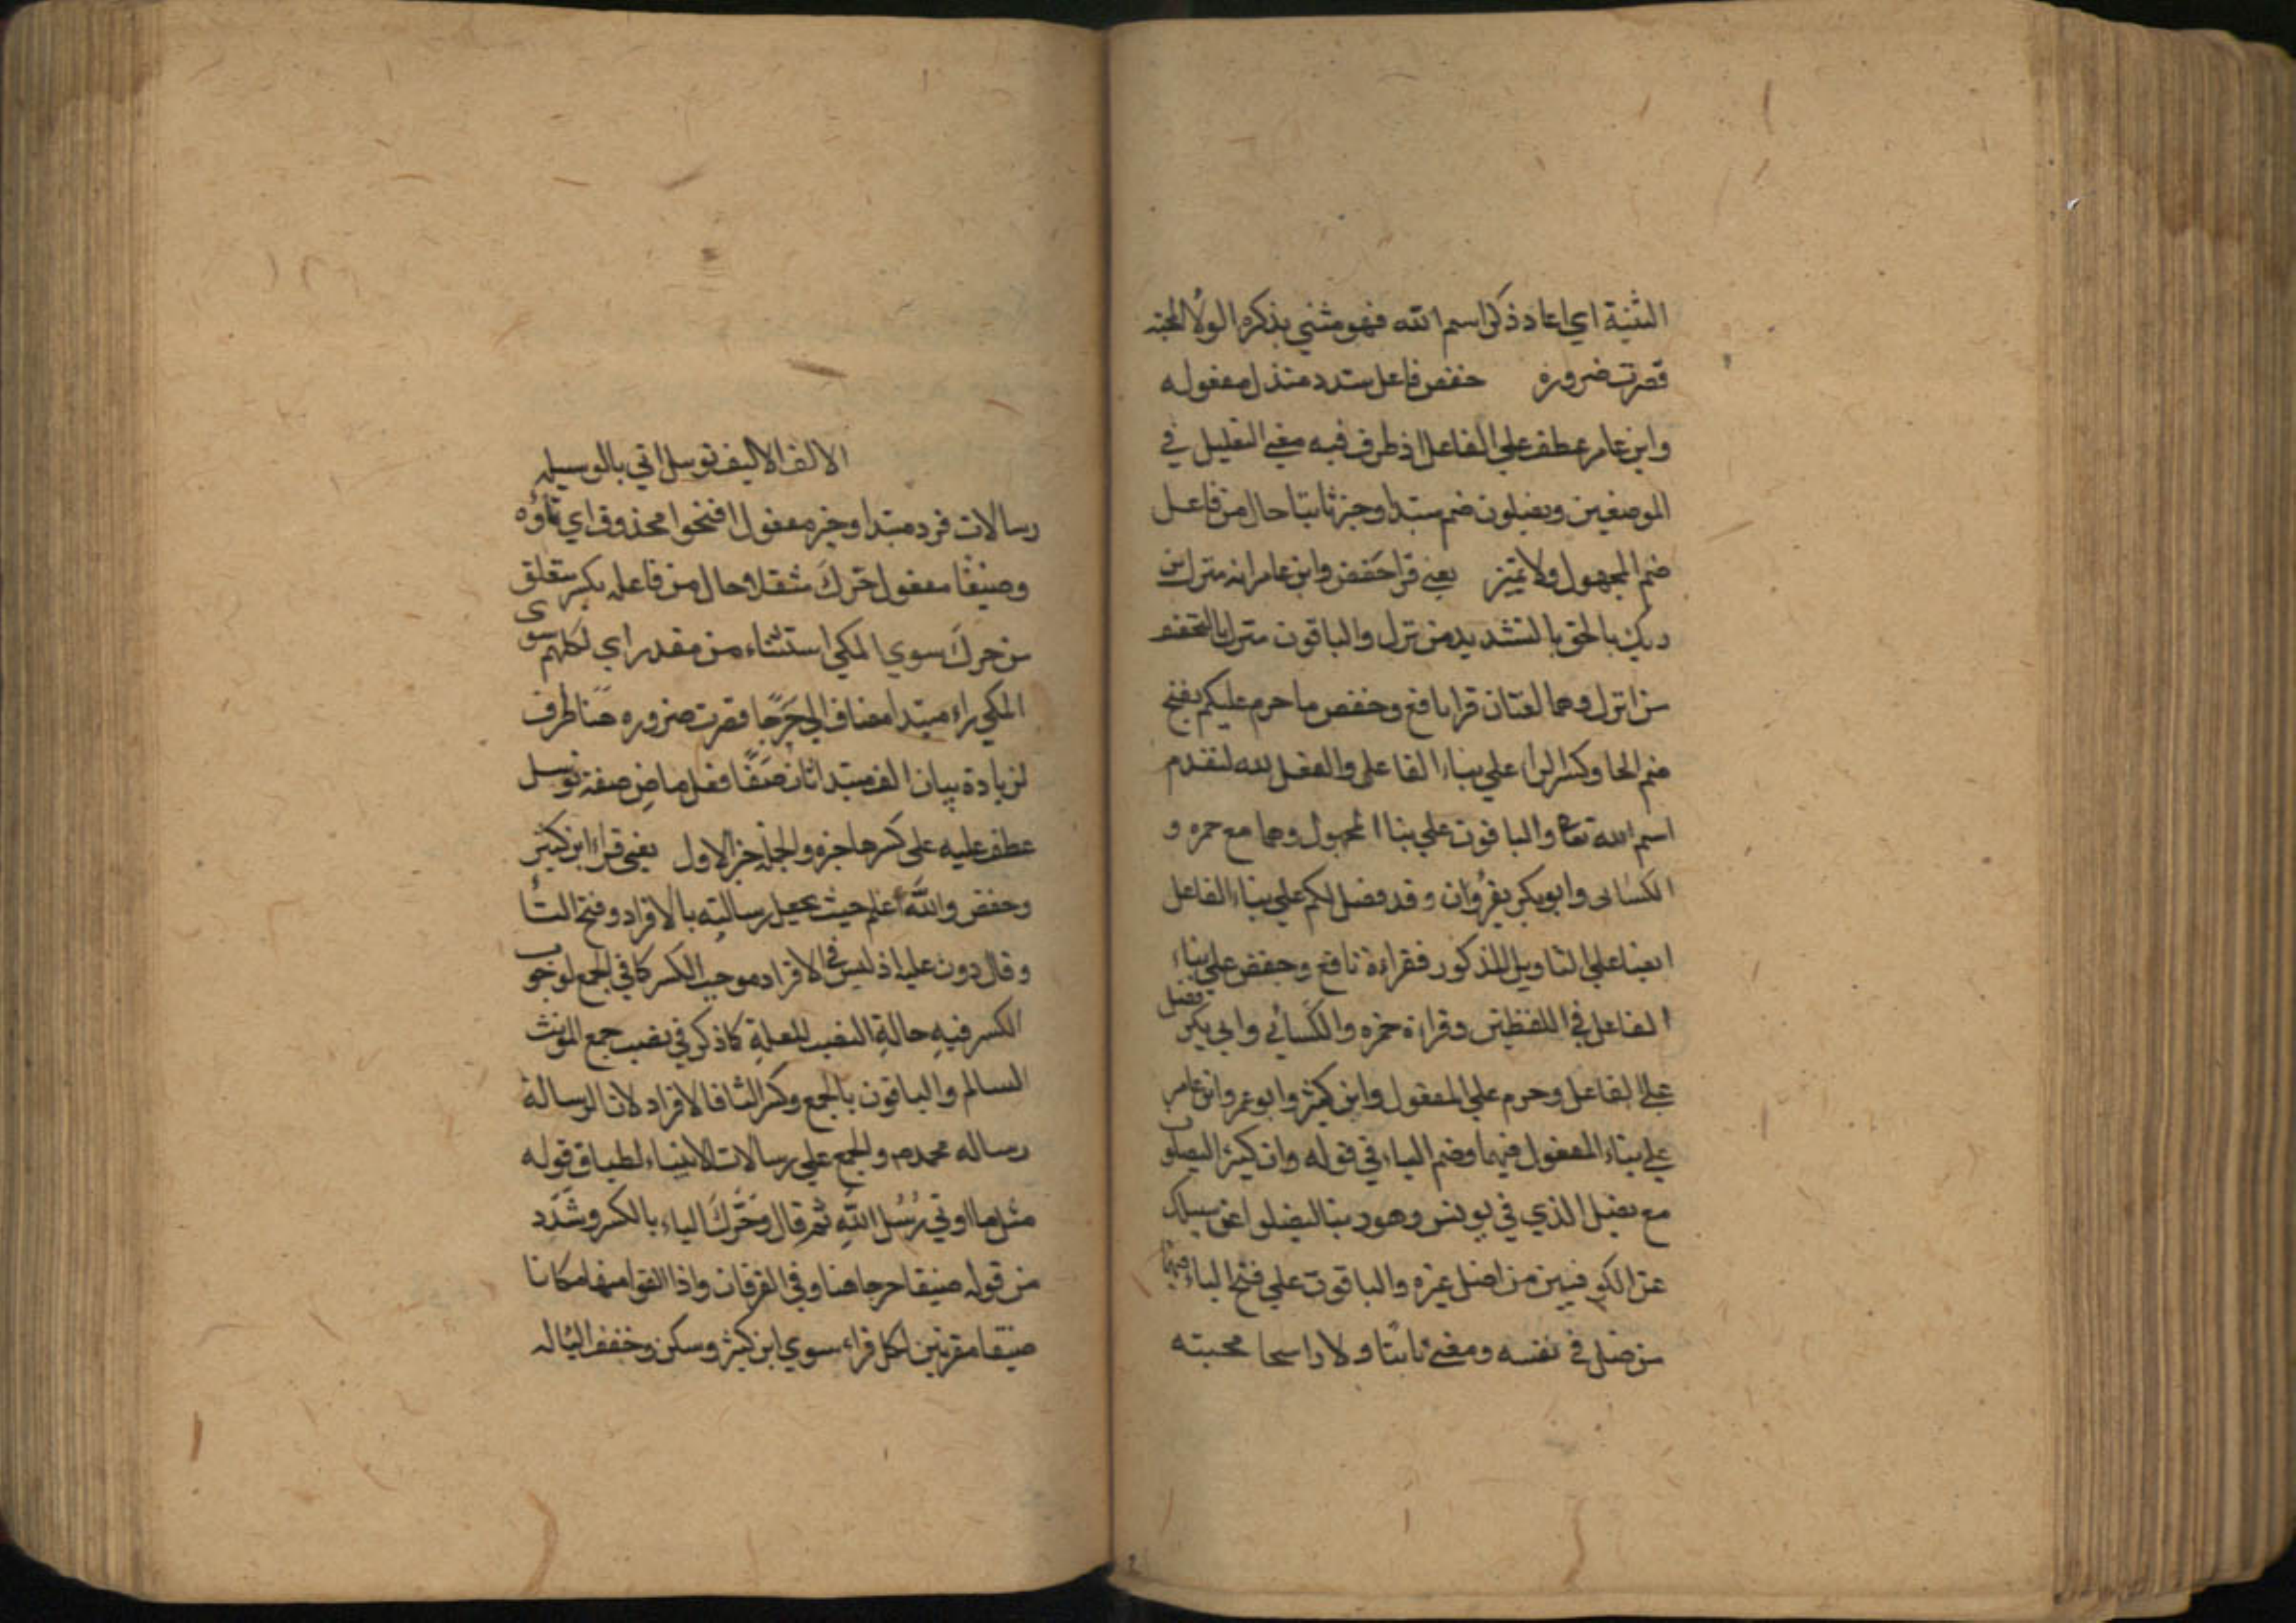 الثنية اي اعاد ذكر اسم الله فهو مثني بذكره الولا المحبة
قصرت ضرورة حفص فاعل شدد منزل مفعوله
وابن عامر عطف علي الفاعل اذ ظرف فيه معني التعليل في
الموضعين ويضلون ضم مبتدا وخبر ثابتا حال من فاعل
ضم المجهول ولا تميز يعني قرا حفص وابن عامر انه منزل من
ربك بالحق بالتشديد من نزل والباقون منزل بالتخفيف
من انزل وهما لغتان قرا نافع وحفص ما حرم عليكم بفتح
ضم الحا وكسر الرا علي بناء الفاعل والفعل لله لتقدم
اسم الله تعا والباقون علي بنا المجهول وهما مع حمزه و
الكسائى وابو بكر يقرؤان وقد فصل لكم علي بناء الفاعل
ايضا علي التاويل المذكور فقراءة نافع وحفص علي بناء
الفاعل في اللفظين وقراءة حمزه والكسائي وابي بكر فصل
علي الفاعل وحرم علي المفعول وابن كثير وابو عمرو وابن عامر
علي بناء المفعول فيهما وضم الياء في قوله وان كثيرا ليضلون
مع يضل الذي في يونس وهو ربنا ليضلوا عن سبيلك
عن الكوفيين من اضل غيره والباقون علي فتح الياء فيهما
من ضل في نفسه ومعني ثابتا ولا راسخا محبته
الالف الاليف توسل اتي بالوسيله
رسالات فرد مبتدا وخبر مفعول افتحوا محذوف اي تاؤه
وضيقا مفعول حرك مثقلا حال من فاعله بكسر متعلق
من حرك سوي المكي استثناء من مقدر اي لكلهم سوى
المكي راء مبتدا مضاف الي حرجا قصرت ضروره هنا ظرف
لزيادة بيان الف مبتدا ثان صفا فعل ماض صفة توسل
عطف عليه على كسرها خبره والجملة خبر الاول يعني قراء ابن كثير
وحفص والله اعلم حيث يجعل رسالته بالافراد وفتح التا
وقال دون علة اذ ليس في الافراد موجب الكسر كما في الجمع لوجوب
الكسر فيه حالة النصب للعلة كما ذكر في نصب جمع المونث
السالم والباقون بالجمع وكسر التا فالافراد لان الرسالة
رساله محمد ص والجمع علي رسالات الانبياء لطباق قوله
مثل ما اوتي رسل الله ثم قال وحرك الياء بالكسر وشدد
من قوله ضيقا حرجا هنا وفي الفرقان واذا القوا منها مكانا
ضيقا مقرنين لكل قراء سوي ابن كثير وسكن وخفف الياء له